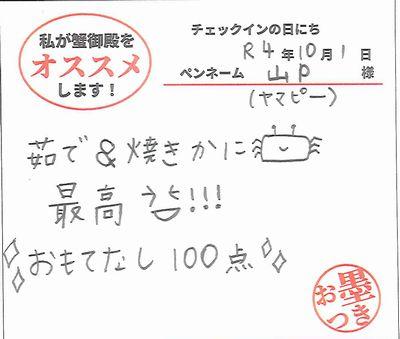 私が蟹御殿を
オススメ
します！
チェックインの日にち
R4年10月1日
ペンネーム 山P 様
(ヤマピー)
茹で&焼きかに
最高!!!
おもてなし100点
お墨つき